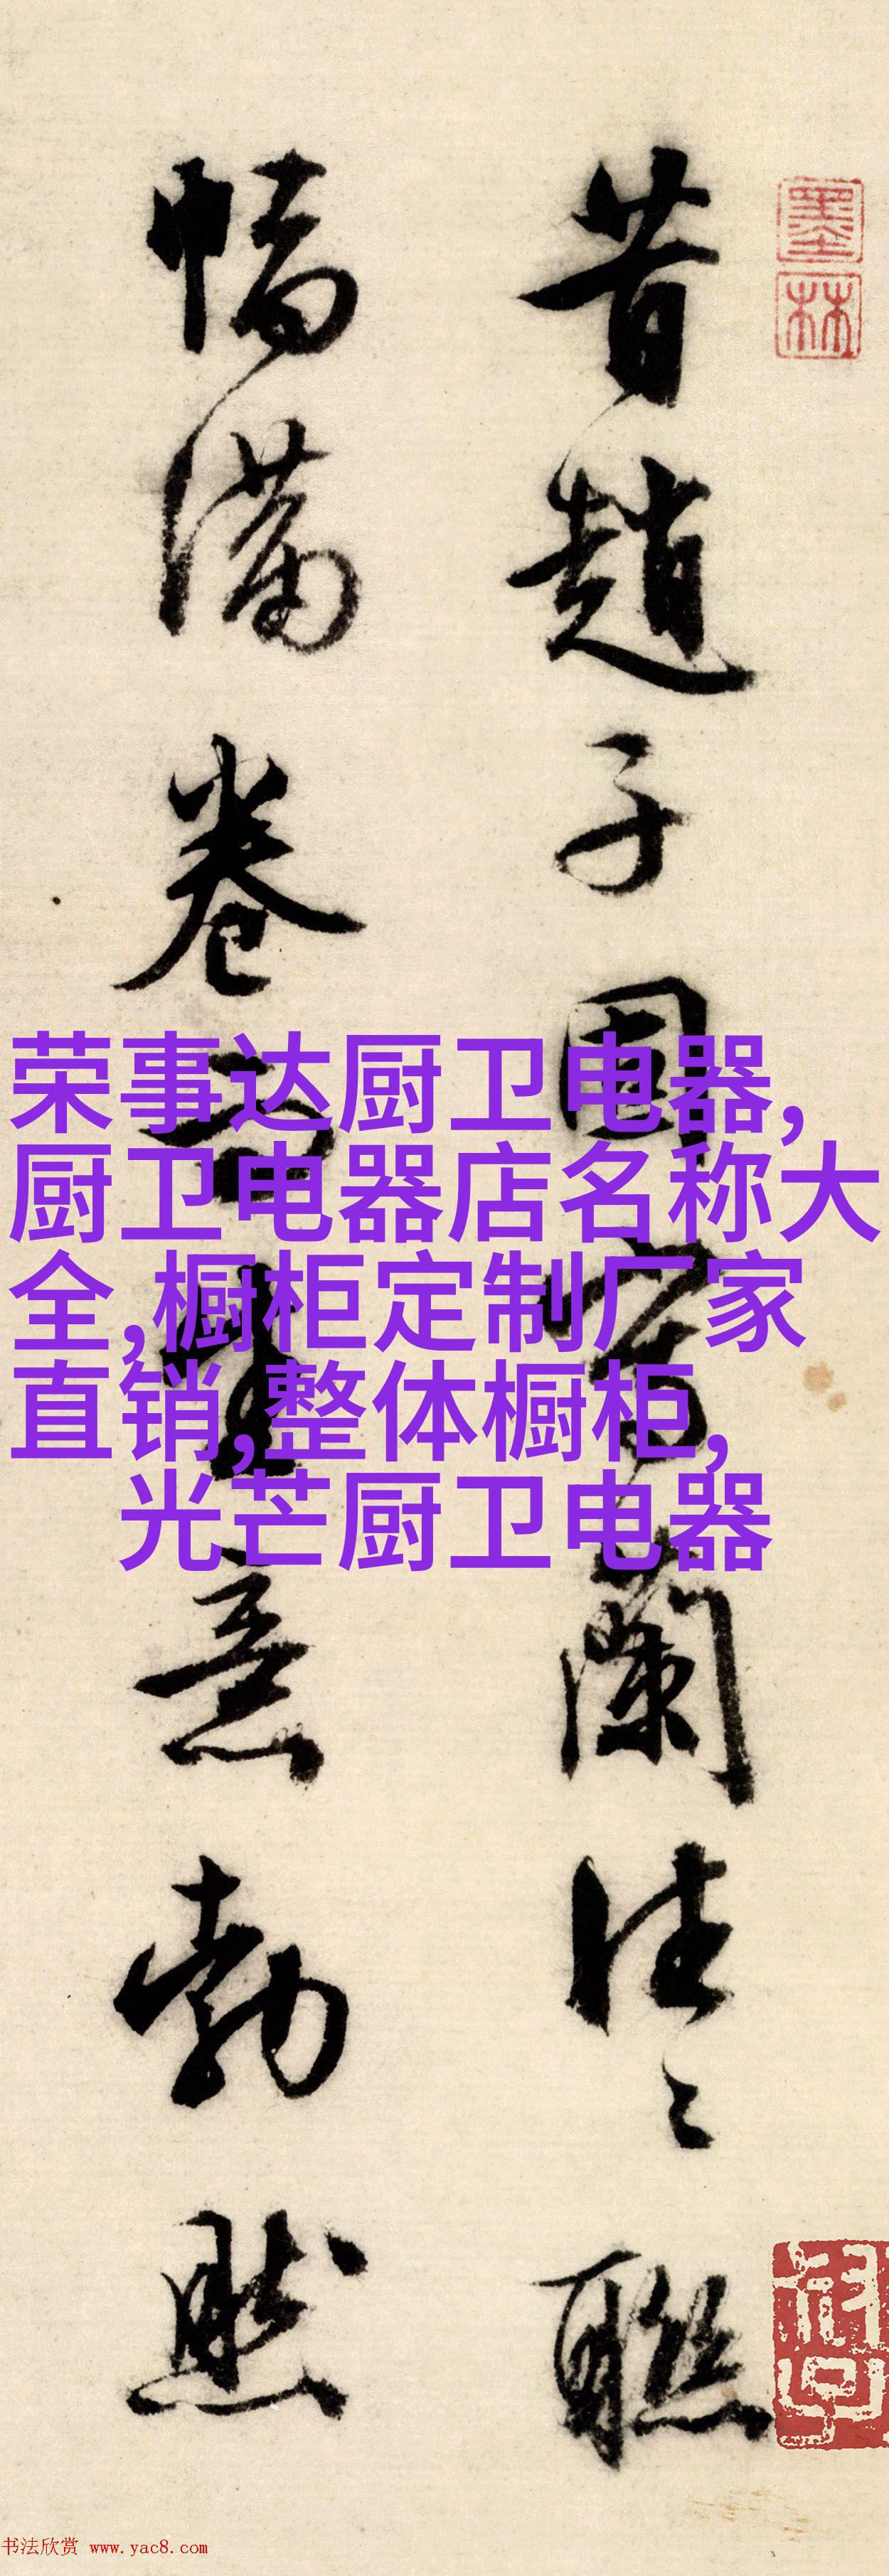 昔趙子固寫蘭往〻聯
幅滿卷而生意勃然
墨林
荣事达厨卫电器,
厨卫电器店名称大
全,橱柜定制厂家
直销,整体橱柜,
光芒厨卫电器
书法欣赏 www.yac8.com